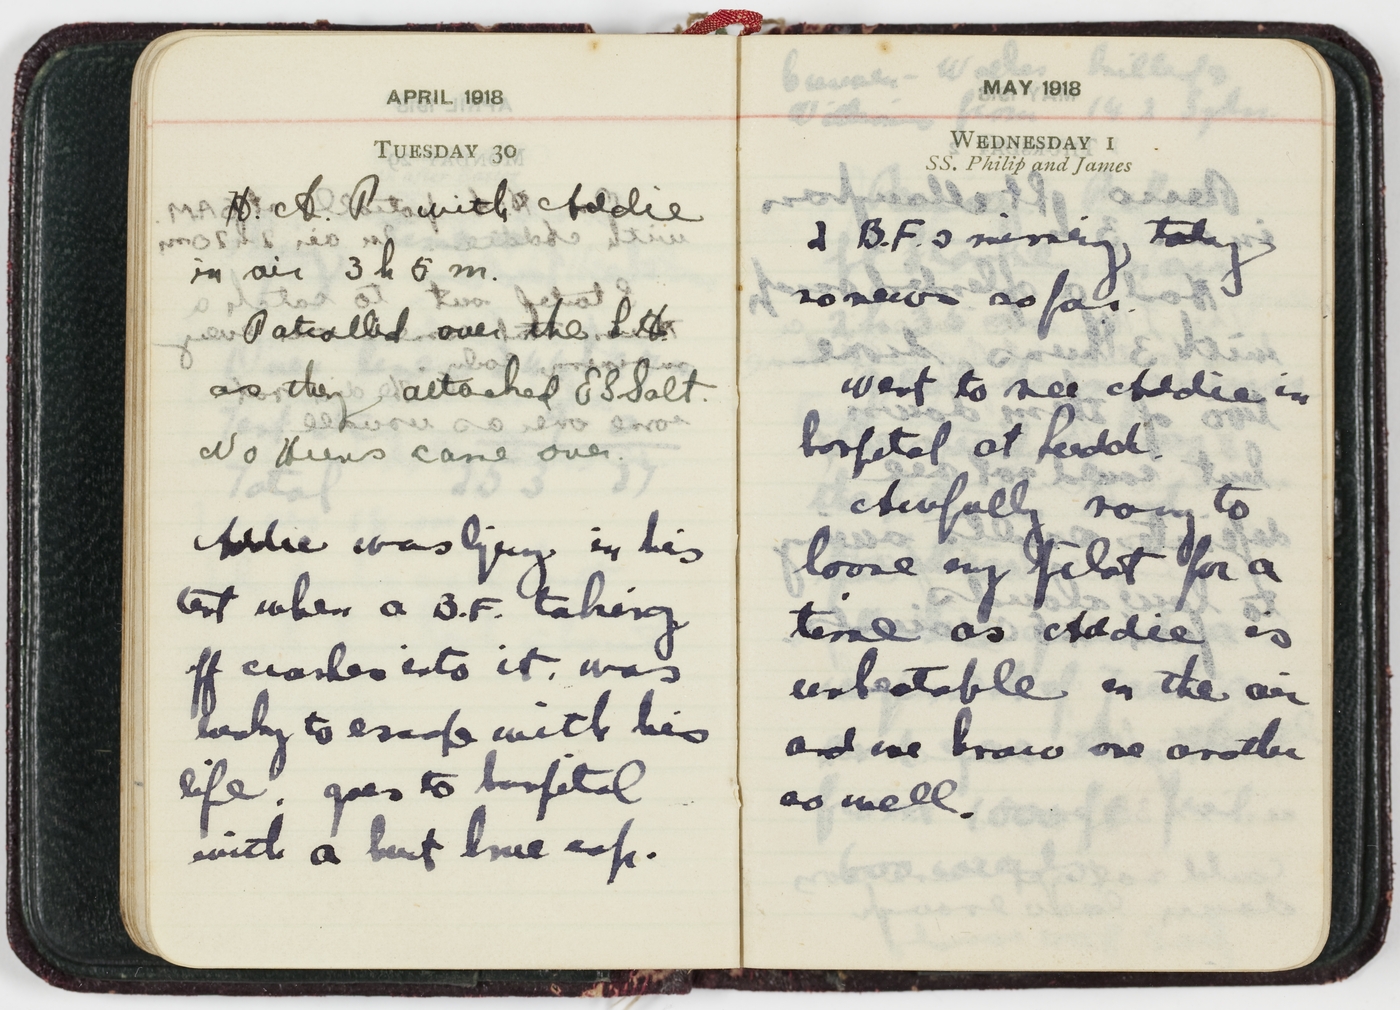 APRIL 1918
TUESDAY 30
H. A. P. with Addie
in air 3 h 5 m.
Patrolled over the
as they attacked Es Salt.
No Huns came over.
Addie was lying in his
tent when a B.F. taking
off crashes into it. was
lucky to escape with his
life. goes to hospital
with a hurt knee cap.
MAY 1918
WEDNESDAY 1
SS. Philip and James
2 B.F.s missing today
no news so far.
Went to see Addie in
hospital at Ludd.
Awfully sorry to
loose my Pilot for a
time as Addie is
unbeatable in the air
and we know one another
so well.